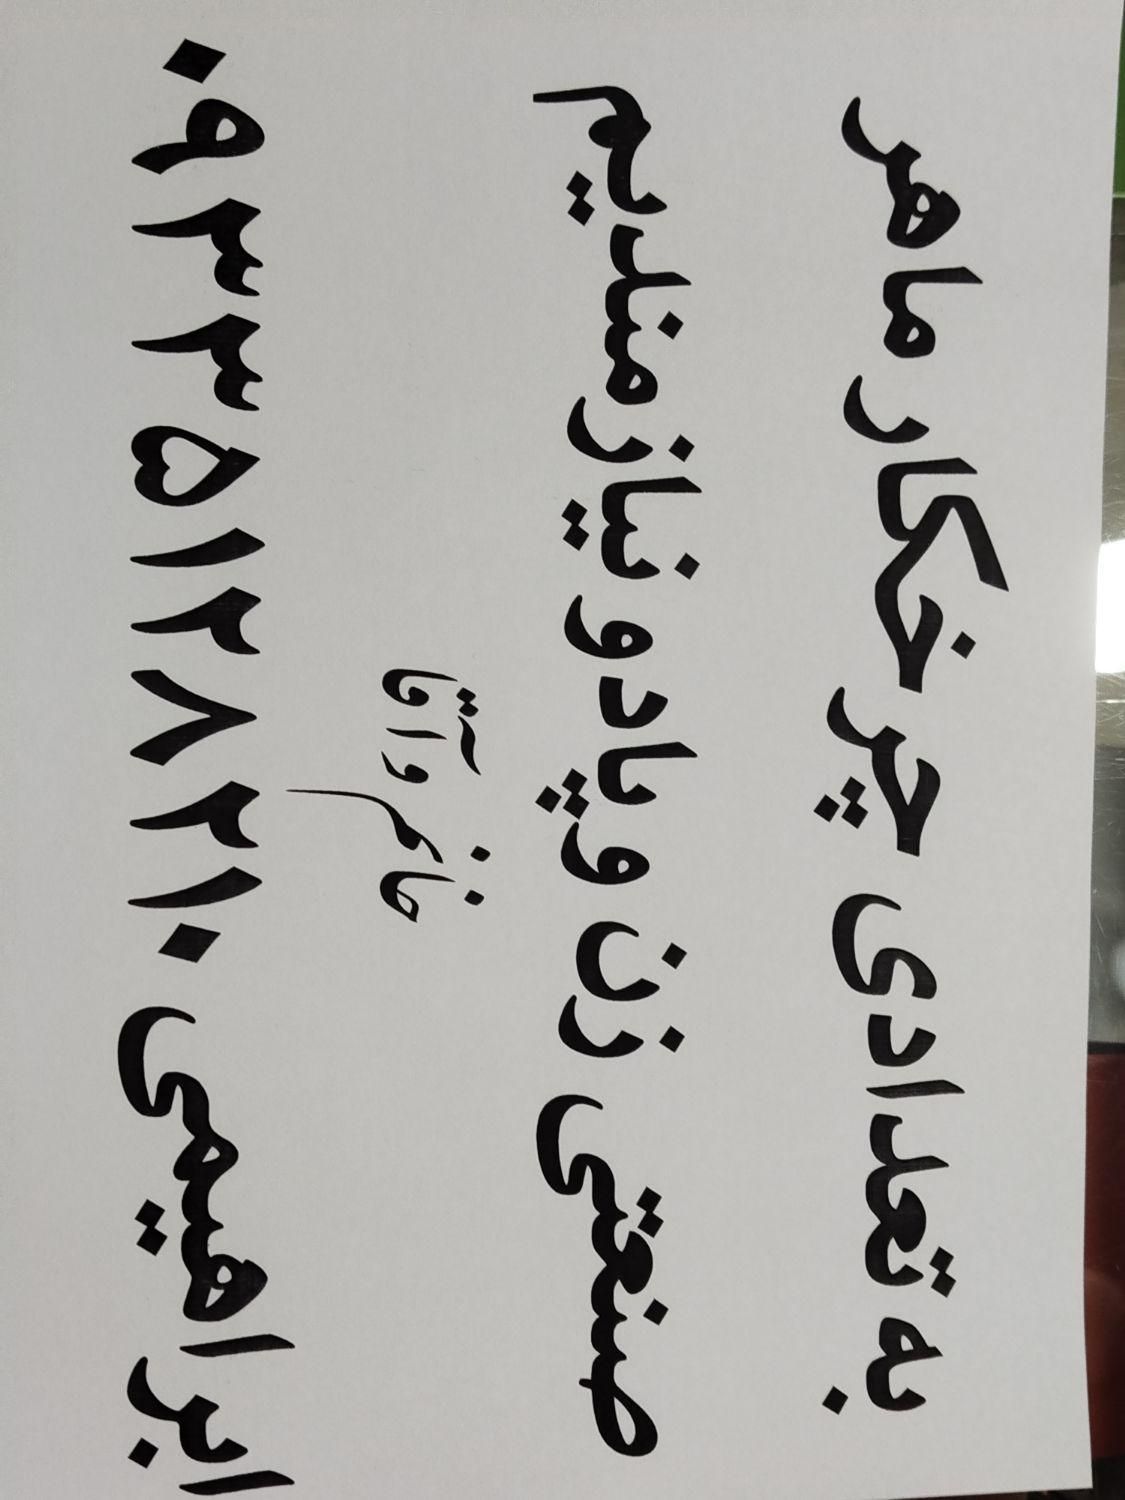 به تعدادی چرخکار ماهر
صنعتی زن و پادو نیازمندیم
خانم و آقا
ابراهیمی ۰۹۳۳۵۱۲۸۲۱۰